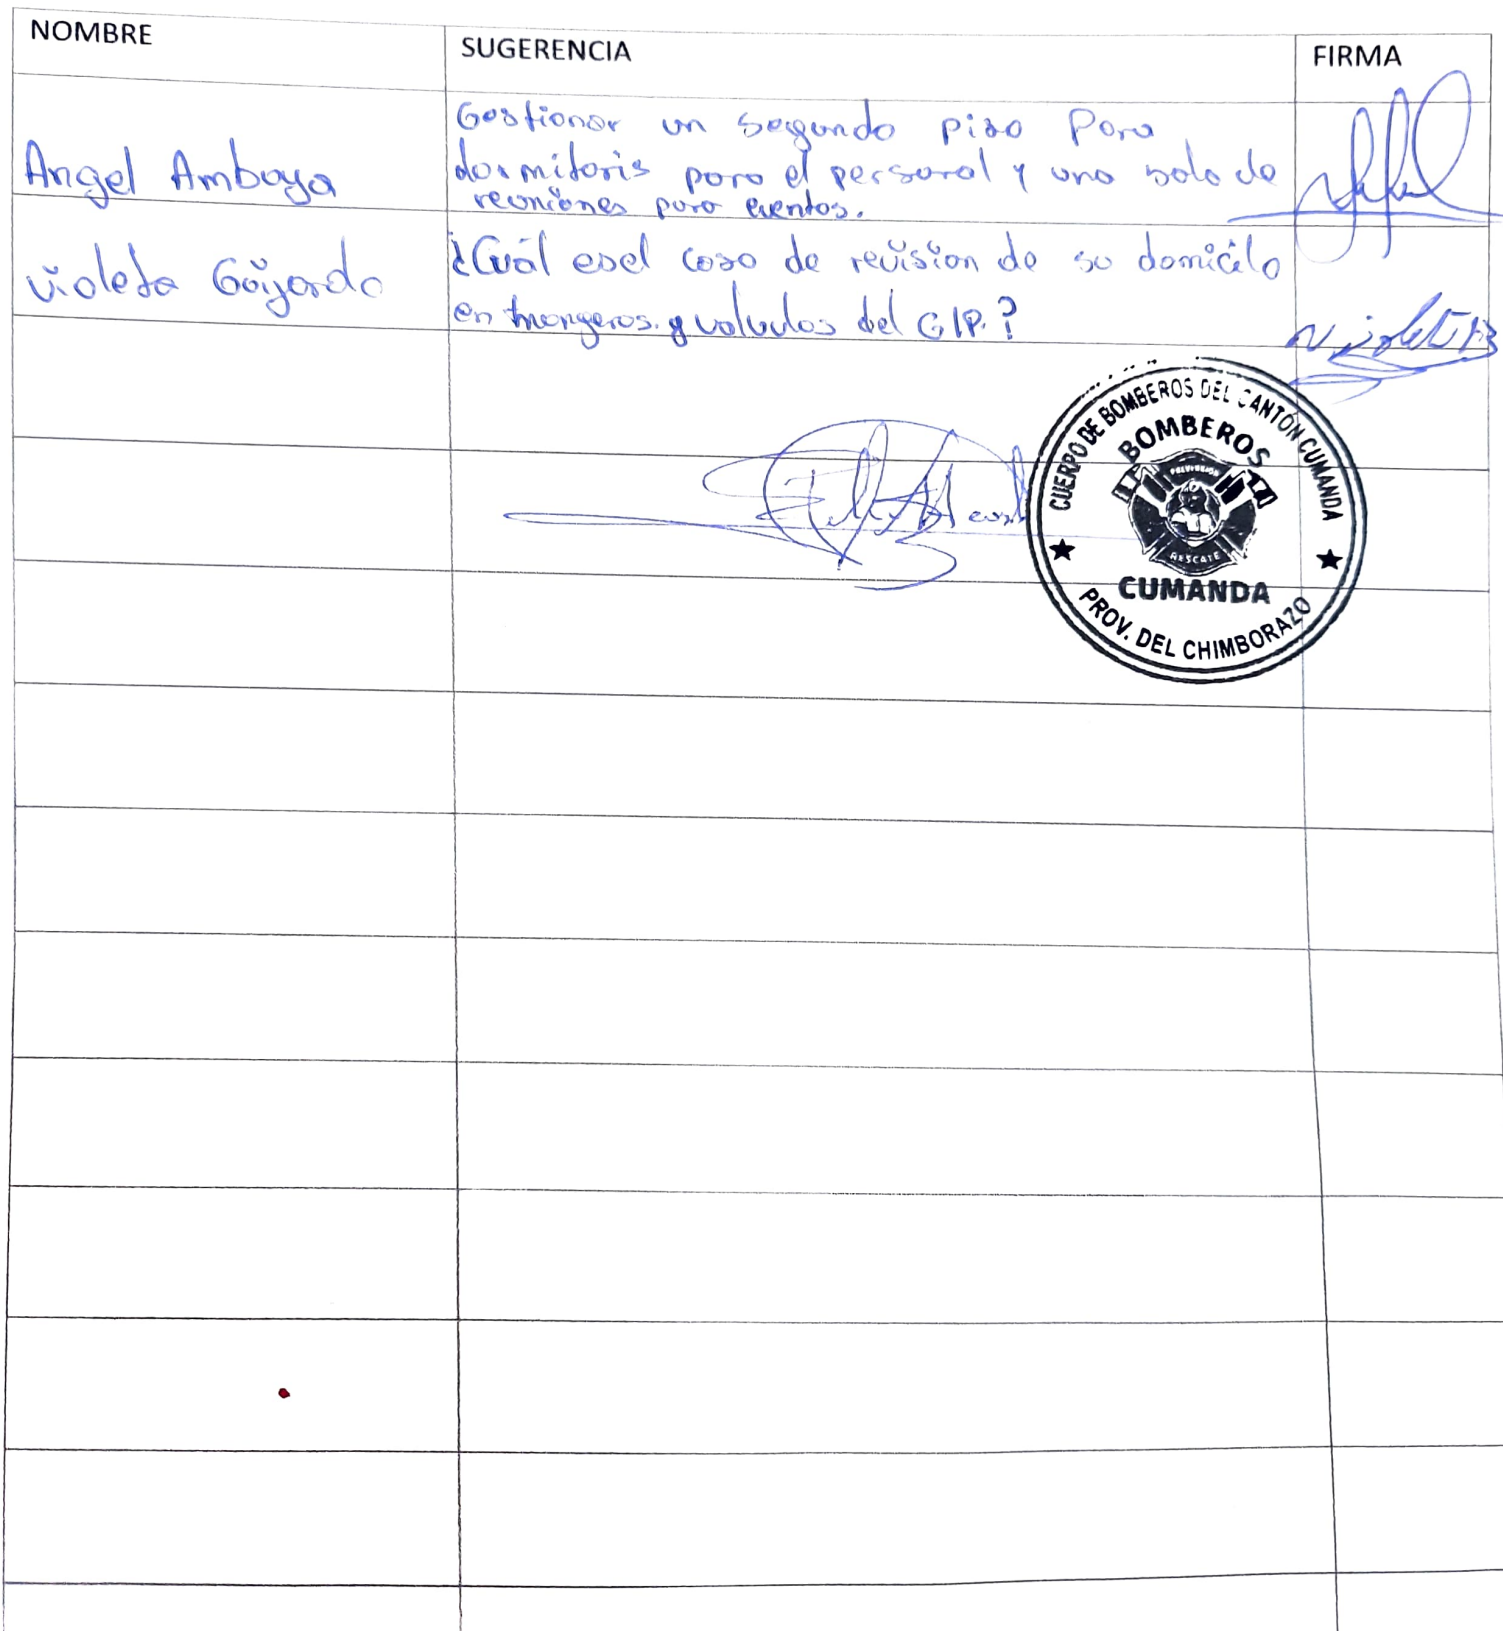 NOMBRE
SUGERENCIA
FIRMA
Angel Amboya
Gestionar un segundo piso Para
dormitoris para el personal y una sala de
reuniones para eventos.
Violeta Goiyardo
¿Cuál es el caso de revisión de su domicilo
en mangeros y valvulas del GIP.?
CUERPO DE BOMBEROS DEL CANTÓN CUMANDA
BOMBEROS
RESCATE
CUMANDA
PROV. DEL CHIMBORAZO